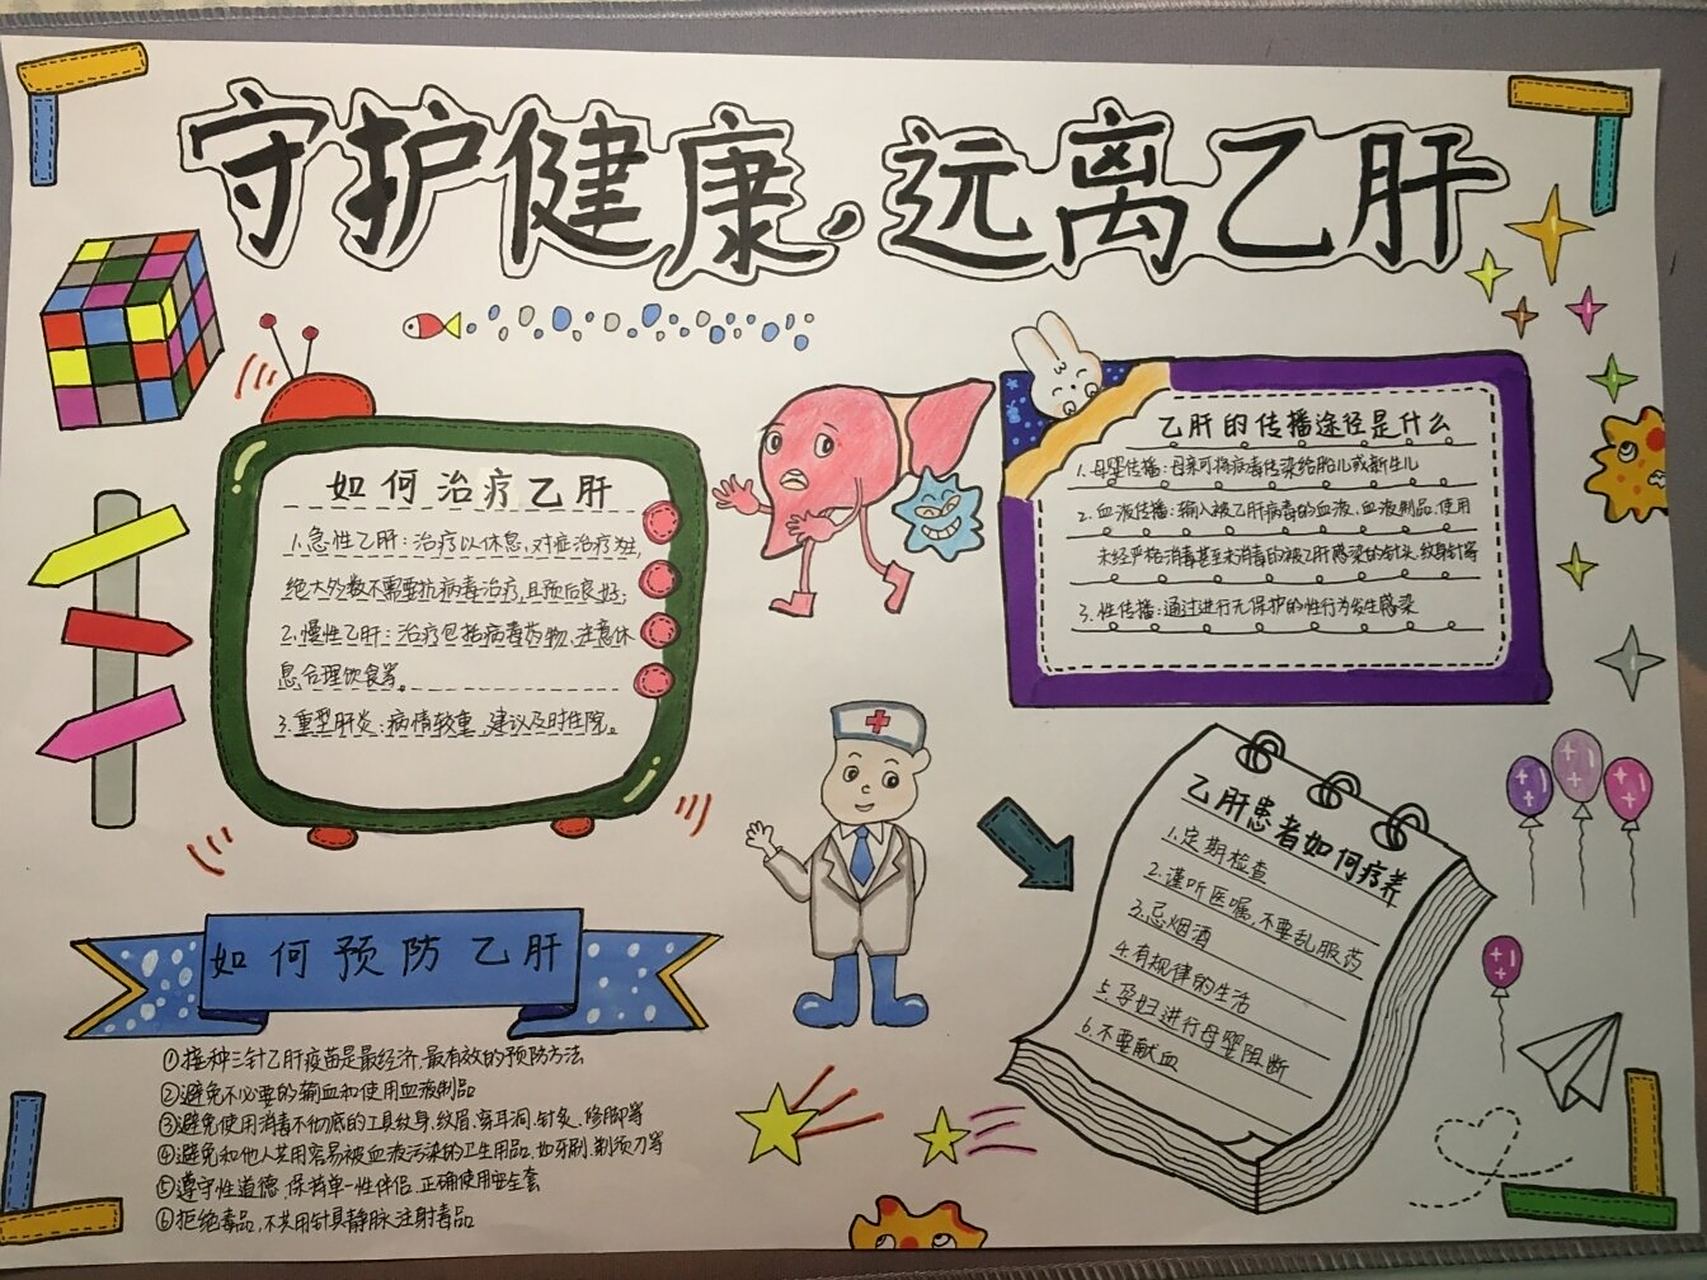 守护健康，远离乙肝
如何治疗乙肝
1.急性乙肝：治疗以休息，对症治疗为主，
绝大多数不需要抗病毒治疗，且预后良好；
2.慢性乙肝：治疗包括病毒药物、注意休
息、合理饮食等。
3.重型肝炎：病情较重，建议及时住院。
乙肝的传播途径是什么
1.母婴传播：母亲可将病毒传染给胎儿或新生儿
2.血液传播：输入被乙肝病毒的血液、血液制品、使用
未经严格消毒甚至未消毒的被乙肝感染的针头、纹身针等
3.性传播：通过进行无保护的性行为发生感染
乙肝患者如何疗养
1.定期检查
2.谨听医嘱，不要乱服药
3.忌烟酒
4.有规律的生活
5.孕妇进行母婴阻断
6.不要献血
如何预防乙肝
①接种三针乙肝疫苗是最经济、最有效的预防方法
②避免不必要的输血和使用血液制品
③避免使用消毒不彻底的工具纹身、纹眉、穿耳洞、针灸、修脚等
④避免和他人共用容易被血液污染的卫生用品，如牙刷、剃须刀等
⑤遵守性道德、保持单一性伴侣、正确使用安全套
⑥拒绝毒品，不共用针具静脉注射毒品